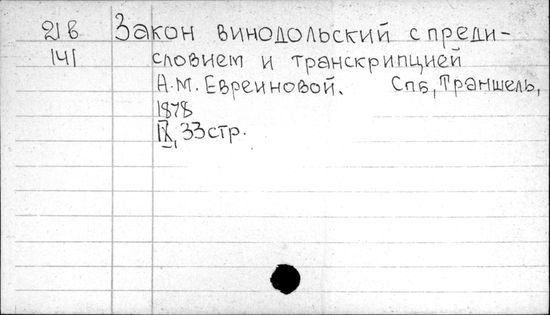 21 в Закон винодольский с преди-
141 словием и транскрипцией
А. М. Евреиновой. Спб, Траншель,
1878
IX, 33 стр.